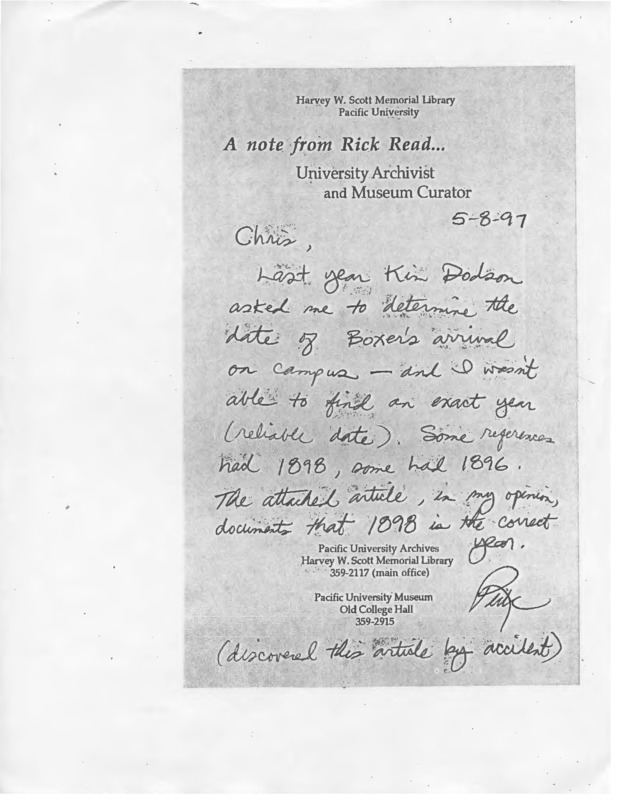 Harvey W. Scott Memorial Library
Pacific University
A note from Rick Read...
University Archivist
and Museum Curator
5-8-97
Chris,
Last year Kim Dodson
asked me to determine the
date of Boxer's arrival
on campus — and I wasn't
able to find an exact year
(reliable date). Some references
had 1898, some had 1896.
The attached article, in my opinion,
documents that 1898 is the correct
year.
Pacific University Archives
Harvey W. Scott Memorial Library
359-2117 (main office)
Pacific University Museum
Old College Hall
359-2915
Rick
(discovered this article by accident)